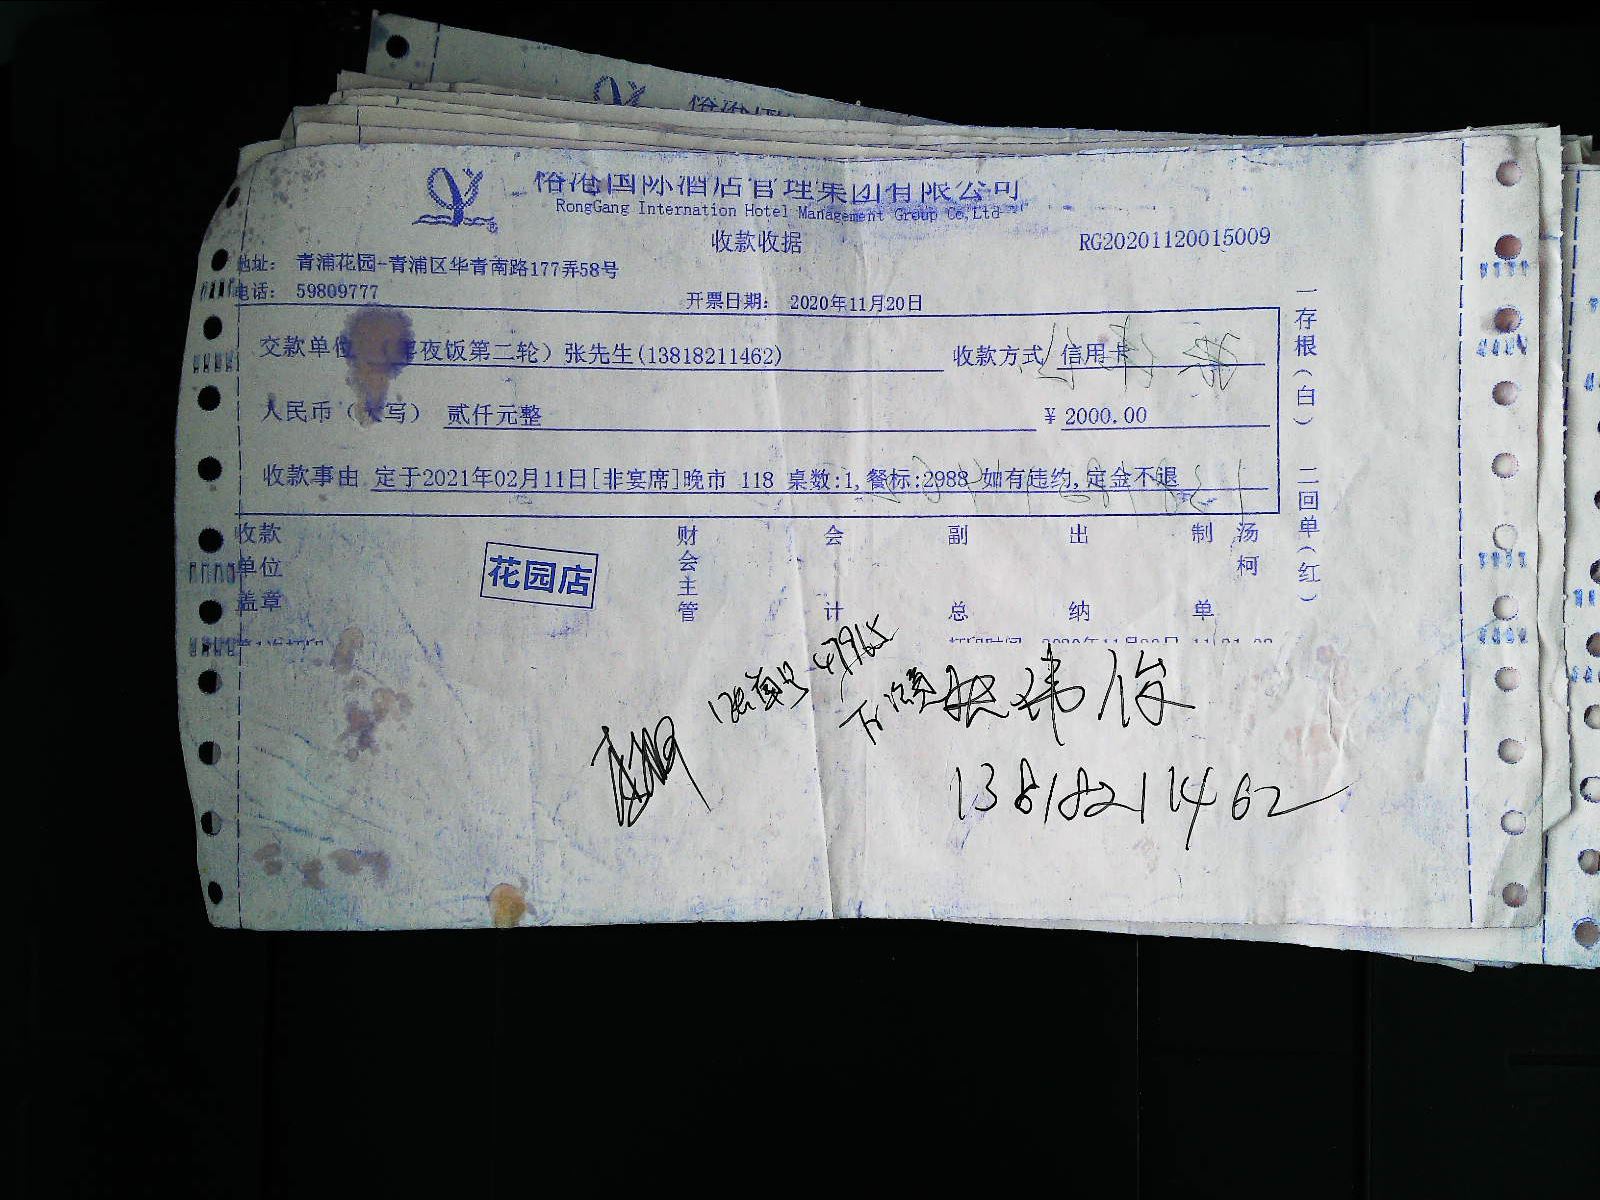 裕港国际酒店管理集团有限公司
RongGang Internation Hotel Management Group Co,Ltd
收款收据 RG20201120015009
地址： 青浦花园-青浦区华青南路177弄58号
电话： 59809777
开票日期： 2020年11月20日
交款单位 （年夜饭第二轮）张先生(13818211462) 收款方式 信用卡
人民币（大写） 贰仟元整 ¥ 2000.00
收款事由 定于2021年02月11日[非宴席]晚市 118 桌数:1,餐标:2988 如有违约,定金不退
收款单位盖章
花园店
财会主管
会计
副总
出纳
制单
汤柯
一存根（白） 二回单（红）
47965
张玮俊
13818211462